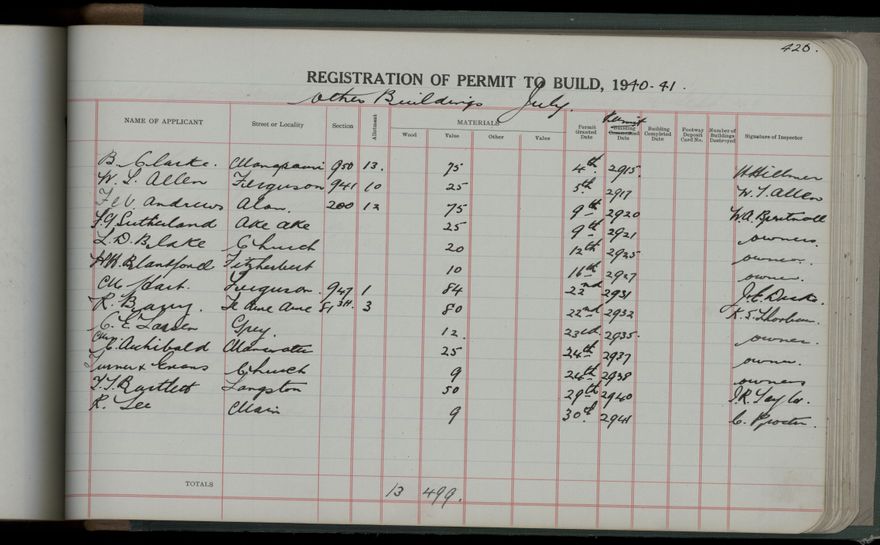 426.
REGISTRATION OF PERMIT TO BUILD, 1940-41.
Other Buildings July.
NAME OF APPLICANT Street or Locality Section Allotment MATERIALS Wood Value Other Value Permit Granted Date Permit Building Commenced Date Building Completed Date Footway Deposit Card No. Number of Buildings Destroyed Signature of Inspector
B. Clarke. 950 13. 75 4th 2915. W Hillmer
W. L. Allen Ferguson 941 10 25 5th 2917 W. L. Allen
Andrews Alan. 200 12 75 9th 2920 W. A.
Sutherland Ake Ake 25 9th 2921 owners.
L. D. Blake Church 20 12th 2925 owner.
Blandford Fitzherbert 10 16th 2927 owner.
Hart. Ferguson. 947 1 84 22nd 2931
R. Te Awe Awe 3 80 22nd 2932 K. S.
C. E. Larsen Grey. 12. 23rd 2935. owner.
Archibald 25 24th 2937 owner.
Turner & Evans Church 9 26th 2938 owners
Bartlett Langston 50 29th 2940 J. R. Taylor.
R. Lee Main 9 30th 2941 C. Procter.
TOTALS 13 499.